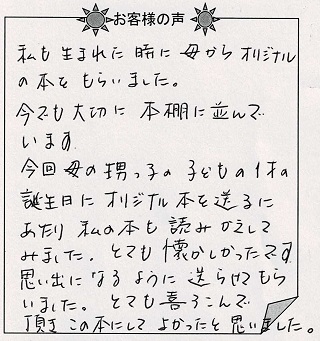 お客様の声
私も生まれた時に母からオリジナル
の本をもらいました。
今でも大切に本棚に並んで
います
今回母の甥っ子の子どもの1才の
誕生日にオリジナル本を送るに
あたり私の本も読みかえして
みました。とても懐かしかったです
思い出になるように送らせてもら
いました。とても喜ろこんで
頂きこの本にしてよかったと思いました。